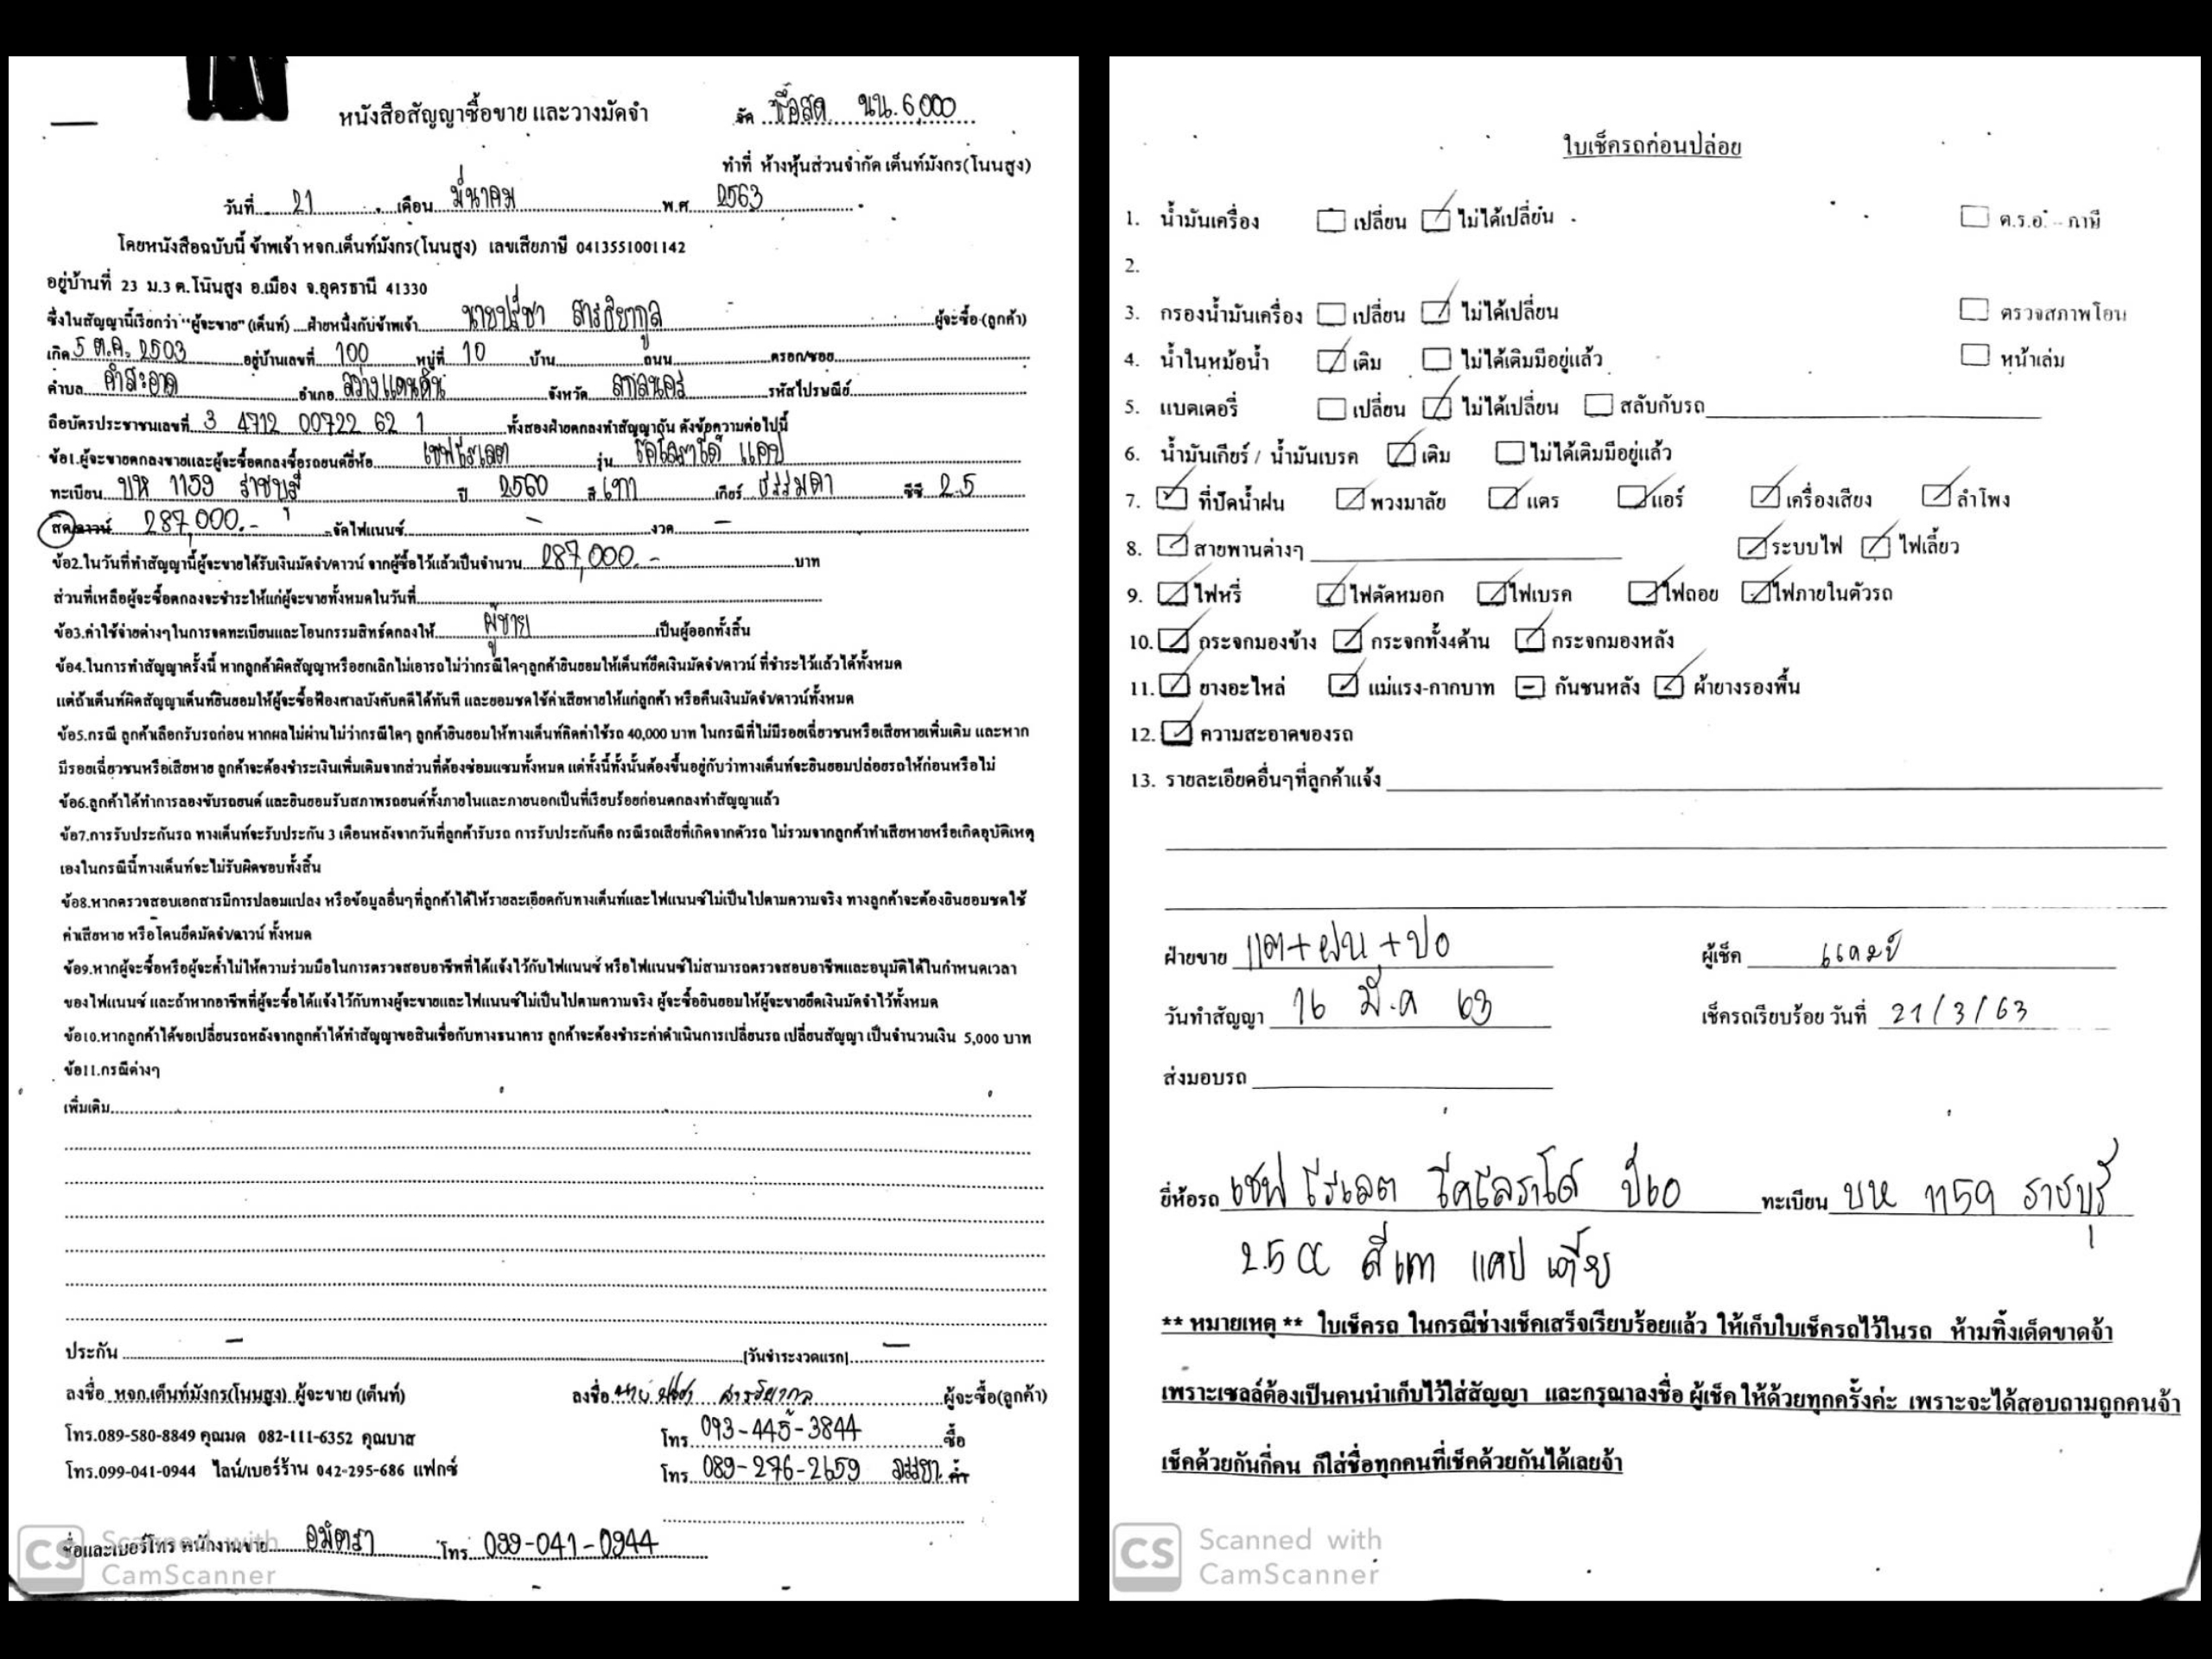 หนังสือสัญญาซื้อขาย และวางมัดจำ
จัด ซื้อสด นน.6,000
ทำที่ ห้างหุ้นส่วนจำกัด เต็นท์มังกร(โนนสูง)
วันที่ 21 เดือน มีนาคม พ.ศ. 2563
โดยหนังสือฉบับนี้ ข้าพเจ้า หจก.เต็นท์มังกร(โนนสูง) เลขเสียภาษี 0413551001142
อยู่บ้านที่ 23 ม.3 ต.โนนสูง อ.เมือง จ.อุดรธานี 41330
ซึ่งในสัญญานี้เรียกว่า "ผู้จะขาย" (เต็นท์) ฝ่ายหนึ่งกับข้าพเจ้า นายปรีชา สารธิยากูล ผู้จะซื้อ (ลูกค้า)
เกิด 5 ต.ค. 2503 อยู่บ้านเลขที่ 100 หมู่ที่ 10 บ้าน ถนน ตรอก/ซอย
ตำบล คำสะอาด อำเภอ สว่างแดนดิน จังหวัด สกลนคร รหัสไปรษณีย์
ถือบัตรประชาชนเลขที่ 3 4712 00722 62 1 ทั้งสองฝ่ายตกลงทำสัญญากัน ดังข้อความต่อไปนี้
ข้อ1.ผู้จะขายตกลงขายและผู้จะซื้อตกลงซื้อรถยนต์ยี่ห้อ เชฟโรเลต รุ่น โคโลราโด้ แคป
ทะเบียน บห 1159 ราชบุรี ปี 2560 สี เทา เกียร์ ธรรมดา ซีซี 2.5
สด/ดาวน์ 287,000.- จัดไฟแนนซ์ - งวด -
ข้อ2.ในวันที่ทำสัญญานี้ผู้จะขายได้รับเงินมัดจำ/ดาวน์ จากผู้ซื้อไว้แล้วเป็นจำนวน 287,000.- บาท
ส่วนที่เหลือผู้จะซื้อตกลงจะชำระให้แก่ผู้จะขายทั้งหมดในวันที่
ข้อ3.ค่าใช้จ่ายต่างๆในการจดทะเบียนและโอนกรรมสิทธ์ตกลงให้ ผู้ขาย เป็นผู้ออกทั้งสิ้น
ข้อ4.ในการทำสัญญาครั้งนี้ หากลูกค้าผิดสัญญาหรือยกเลิกไม่เอารถไม่ว่ากรณีใดๆลูกค้ายินยอมให้เต็นท์ยึดเงินมัดจำ/ดาวน์ ที่ชำระไว้แล้วได้ทั้งหมด
แต่ถ้าเต็นท์ผิดสัญญาเต็นท์ยินยอมให้ผู้จะซื้อฟ้องศาลบังคับคดีได้ทันที และยอมชดใช้ค่าเสียหายให้แก่ลูกค้า หรือคืนเงินมัดจำ/ดาวน์ทั้งหมด
ข้อ5.กรณี ลูกค้าเลือกรับรถก่อน หากผลไม่ผ่านไม่ว่ากรณีใดๆ ลูกค้ายินยอมให้ทางเต็นท์คิดค่าใช้รถ 40,000 บาท ในกรณีที่ไม่มีรอยเฉี่ยวชนหรือเสียหายเพิ่มเติม และหาก
มีรอยเฉี่ยวชนหรือเสียหาย ลูกค้าจะต้องชำระเงินเพิ่มเติมจากส่วนที่ต้องซ่อมแซมทั้งหมด แต่ทั้งนี้ทั้งนั้นต้องขึ้นอยู่กับว่าทางเต็นท์จะยินยอมปล่อยรถให้ก่อนหรือไม่
ข้อ6.ลูกค้าได้ทำการลองขับรถยนต์ และยินยอมรับสภาพรถยนต์ทั้งภายในและภายนอกเป็นที่เรียบร้อยก่อนตกลงทำสัญญาแล้ว
ข้อ7.การรับประกันรถ ทางเต็นท์จะรับประกัน 3 เดือนหลังจากวันที่ลูกค้ารับรถ การรับประกันคือ กรณีรถเสียที่เกิดจากตัวรถ ไม่รวมจากลูกค้าทำเสียหายหรือเกิดอุบัติเหตุ
เองในกรณีนี้ทางเต็นท์จะไม่รับผิดชอบทั้งสิ้น
ข้อ8.หากตรวจสอบเอกสารมีการปลอมแปลง หรือข้อมูลอื่นๆที่ลูกค้าได้ให้รายละเอียดกับทางเต็นท์และไฟแนนซ์ไม่เป็นไปตามความจริง ทางลูกค้าจะต้องยินยอมชดใช้
ค่าเสียหาย หรือโดนยึดมัดจำ/ดาวน์ ทั้งหมด
ข้อ9.หากผู้จะซื้อหรือผู้จะค้ำไม่ให้ความร่วมมือในการตรวจสอบอาชีพที่ได้แจ้งไว้กับไฟแนนซ์ หรือไฟแนนซ์ไม่สามารถตรวจสอบอาชีพและอนุมัติได้ในกำหนดเวลา
ของไฟแนนซ์ และถ้าหากอาชีพที่ผู้จะซื้อได้แจ้งไว้กับทางผู้จะขายและไฟแนนซ์ไม่เป็นไปตามความจริง ผู้จะซื้อยินยอมให้ผู้จะขายยึดเงินมัดจำไว้ทั้งหมด
ข้อ10.หากลูกค้าได้ขอเปลี่ยนรถหลังจากลูกค้าได้ทำสัญญาขอสินเชื่อกับทางธนาคาร ลูกค้าจะต้องชำระค่าดำเนินการเปลี่ยนรถ เปลี่ยนสัญญา เป็นจำนวนเงิน 5,000 บาท
ข้อ11.กรณีต่างๆ
เพิ่มเติม
ประกัน - [วันชำระงวดแรก] -
ลงชื่อ หจก.เต็นท์มังกร(โนนสูง) ผู้จะขาย (เต็นท์) ลงชื่อ นาย ปรีชา สารธิยากูล ผู้จะซื้อ(ลูกค้า)
โทร.089-580-8849 คุณมด 082-111-6352 คุณบาส โทร 093-445-3844 ซื้อ
โทร.099-041-0944 ไลน์/เบอร์ร้าน 042-295-686 แฟกซ์ โทร 089-276-2659 ค้ำ
ชื่อและเบอร์โทร พนักงานขาย อมิตรา โทร 099-041-0944
CS Scanned with
CamScanner
ใบเช็ครถก่อนปล่อย
1. น้ำมันเครื่อง เปลี่ยน ไม่ได้เปลี่ยน ต.ร.อ. - ภาษี
2.
3. กรองน้ำมันเครื่อง เปลี่ยน ไม่ได้เปลี่ยน ตรวจสภาพโอน
4. น้ำในหม้อน้ำ เติม ไม่ได้เติมมีอยู่แล้ว หน้าเล่ม
5. แบตเตอรี่ เปลี่ยน ไม่ได้เปลี่ยน สลับกับรถ
6. น้ำมันเกียร์ / น้ำมันเบรค เติม ไม่ได้เติมมีอยู่แล้ว
7. ที่ปัดน้ำฝน พวงมาลัย แตร แอร์ เครื่องเสียง ลำโพง
8. สายพานต่างๆ ระบบไฟ ไฟเลี้ยว
9. ไฟหรี่ ไฟตัดหมอก ไฟเบรค ไฟถอย ไฟภายในตัวรถ
10. กระจกมองข้าง กระจกทั้ง4ด้าน กระจกมองหลัง
11. ยางอะไหล่ แม่แรง-กากบาท กันชนหลัง ผ้ายางรองพื้น
12. ความสะอาดของรถ
13. รายละเอียดอื่นๆที่ลูกค้าแจ้ง
ฝ่ายขาย แต+ฝน+ปอ ผู้เช็ค แคมป์
วันทำสัญญา 16 มี.ค 63 เช็ครถเรียบร้อย วันที่ 21/3/63
ส่งมอบรถ
ยี่ห้อรถ เชฟโรเลต โคโลราโด้ ปี60 ทะเบียน บห 1159 ราชบุรี
2.5 CC สีเทา แคป เตี้ย
** หมายเหตุ ** ใบเช็ครถ ในกรณีช่างเช็คเสร็จเรียบร้อยแล้ว ให้เก็บใบเช็ครถไว้ในรถ ห้ามทิ้งเด็ดขาดจ้า
เพราะเซลล์ต้องเป็นคนนำเก็บไว้ใส่สัญญา และกรุณาลงชื่อ ผู้เช็ค ให้ด้วยทุกครั้งค่ะ เพราะจะได้สอบถามถูกคนจ้า
เช็คด้วยกันกี่คน ก็ใส่ชื่อทุกคนที่เช็คด้วยกันได้เลยจ้า
CS Scanned with
CamScanner